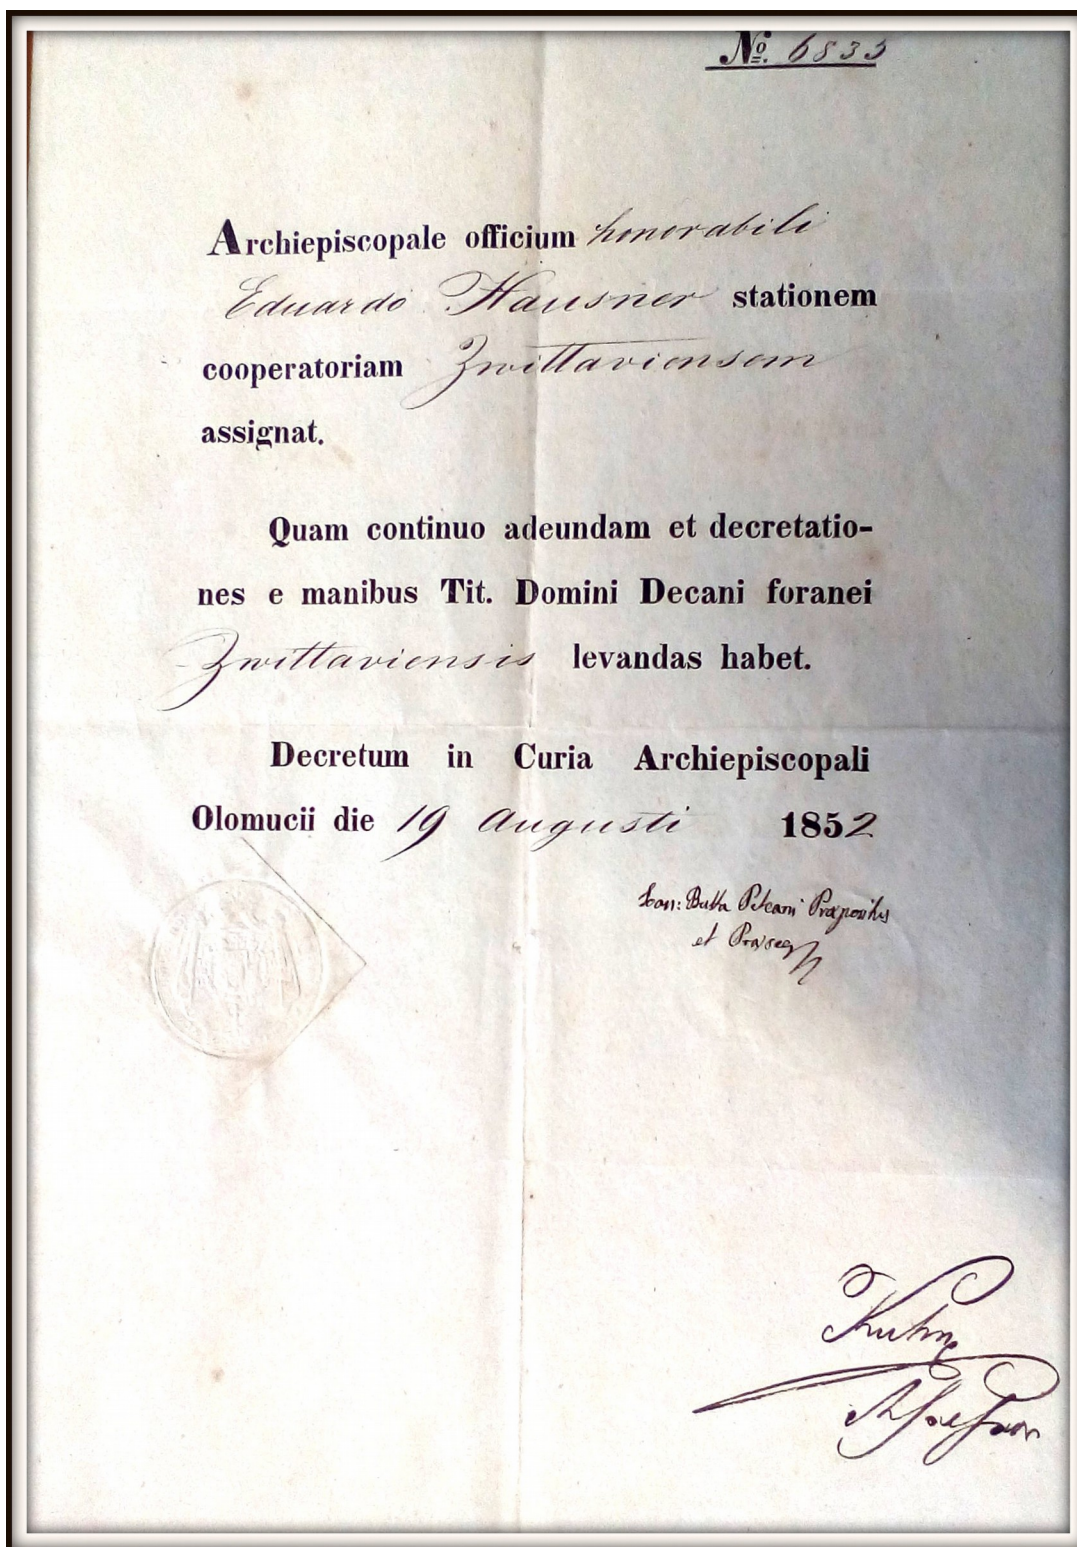 No. 6835
Archiepiscopale officium honorabili
Eduardo Hausner stationem
cooperatoriam Zwittaviensem
assignat.
Quam continuo adeundam et decretatio-
nes e manibus Tit. Domini Decani foranei
Zwittaviensis levandas habet.
Decretum in Curia Archiepiscopali
Olomucii die 19 Augusti 1852
Præpositus
et